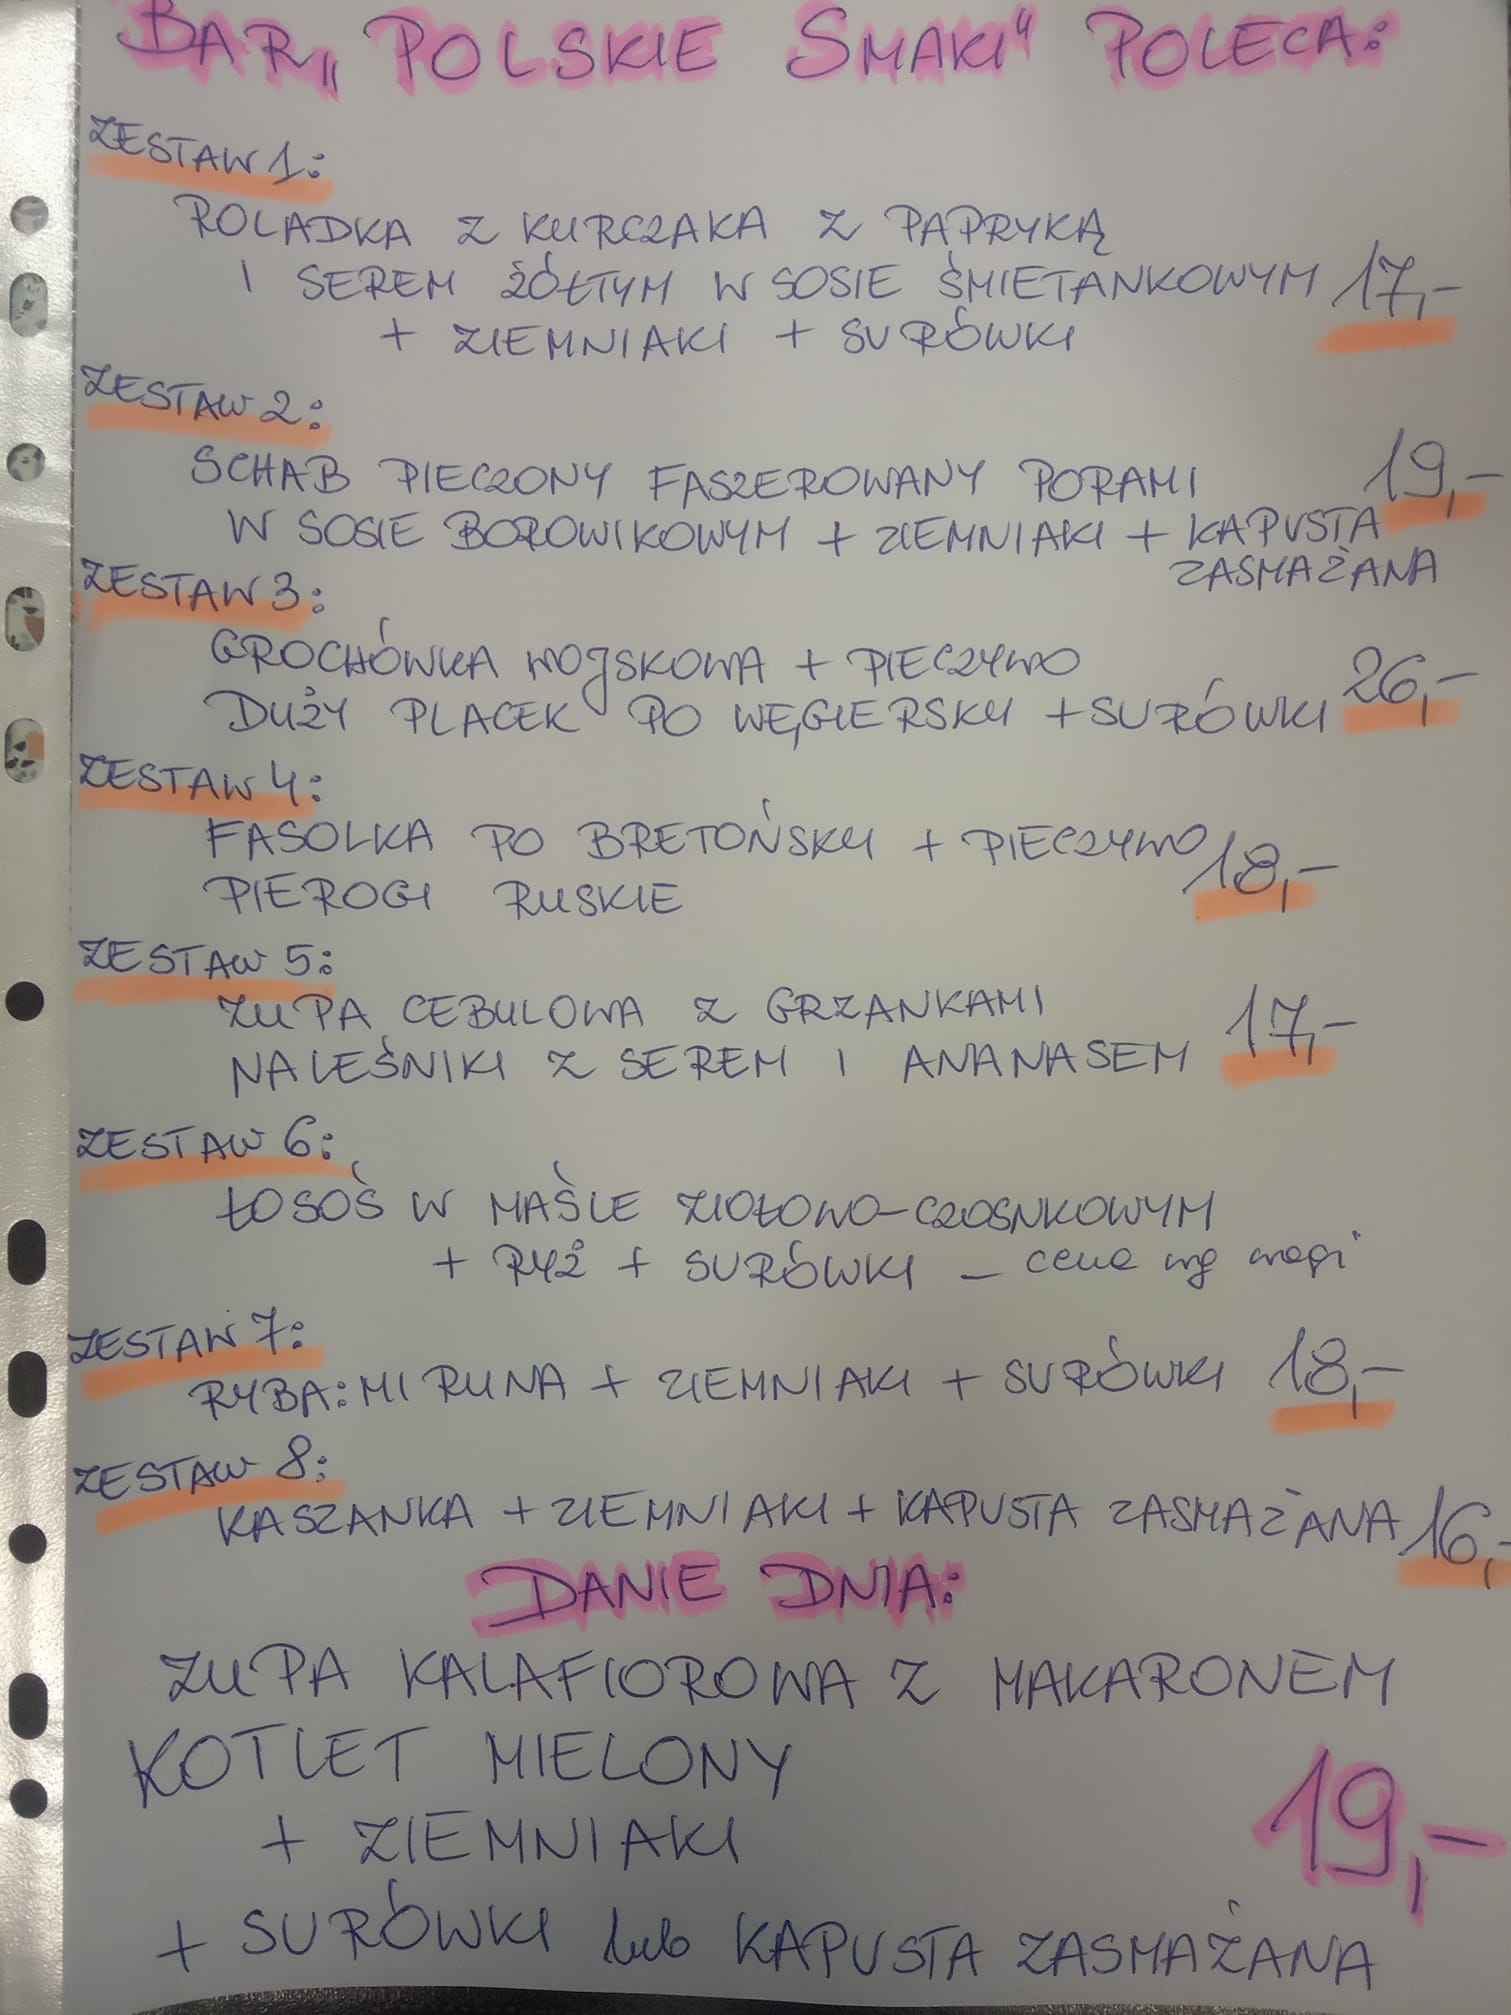 BAR „POLSKIE SMAKI" POLECA:
ZESTAW 1:
ROLADKA Z KURCZAKA Z PAPRYKĄ
I SEREM ŻÓŁTYM W SOSIE ŚMIETANKOWYM 17,-
+ ZIEMNIAKI + SURÓWKI
ZESTAW 2:
SCHAB PIECZONY FASZEROWANY PORAMI 19,-
W SOSIE BOROWIKOWYM + ZIEMNIAKI + KAPUSTA
ZASMAŻANA
ZESTAW 3:
GROCHÓWKA WOJSKOWA + PIECZYWO
DUŻY PLACEK PO WĘGIERSKU + SURÓWKI 26,-
ZESTAW 4:
FASOLKA PO BRETOŃSKU + PIECZYWO 18,-
PIEROGI RUSKIE
ZESTAW 5:
ZUPA CEBULOWA Z GRZANKAMI
NALEŚNIKI Z SEREM I ANANASEM 17,-
ZESTAW 6:
ŁOSOŚ W MAŚLE ZIOŁOWO-CZOSNKOWYM
+ RYŻ + SURÓWKI - cena wg wagi
ZESTAW 7:
RYBA: MIRUNA + ZIEMNIAKI + SURÓWKI 18,-
ZESTAW 8:
KASZANKA + ZIEMNIAKI + KAPUSTA ZASMAŻANA 16,-
DANIE DNIA:
ZUPA KALAFIOROWA Z MAKARONEM
KOTLET MIELONY
+ ZIEMNIAKI 19,-
+ SURÓWKI lub KAPUSTA ZASMAŻANA